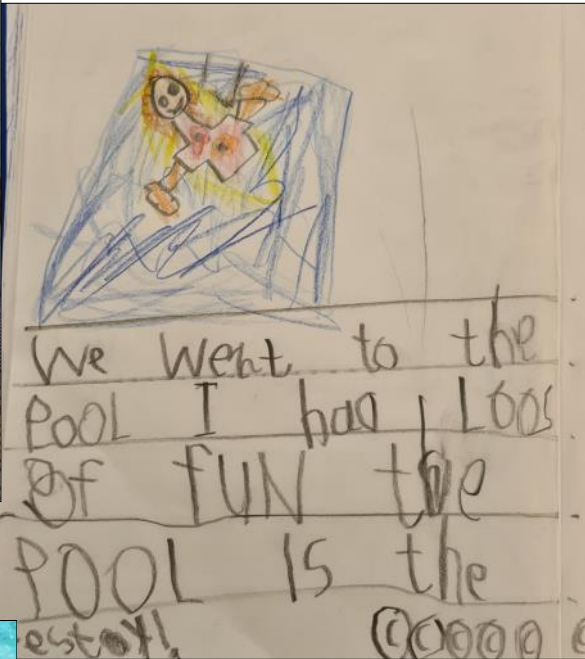 We went to the
POOL I had LOOS
Of fUN the
POOL IS the
estoy!